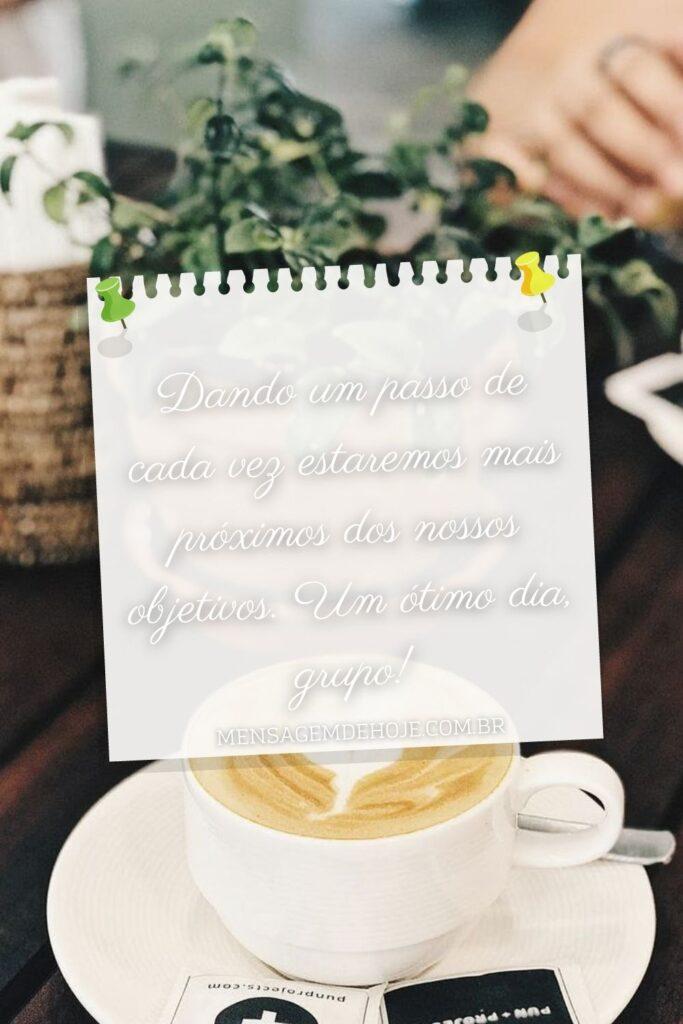 Dando um passo de
cada vez estaremos mais
próximos dos nossos
objetivos. Um ótimo dia,
grupo!
MENSAGEMDEHOJE.COM.BR
punprojects.com
PUN + PROJ